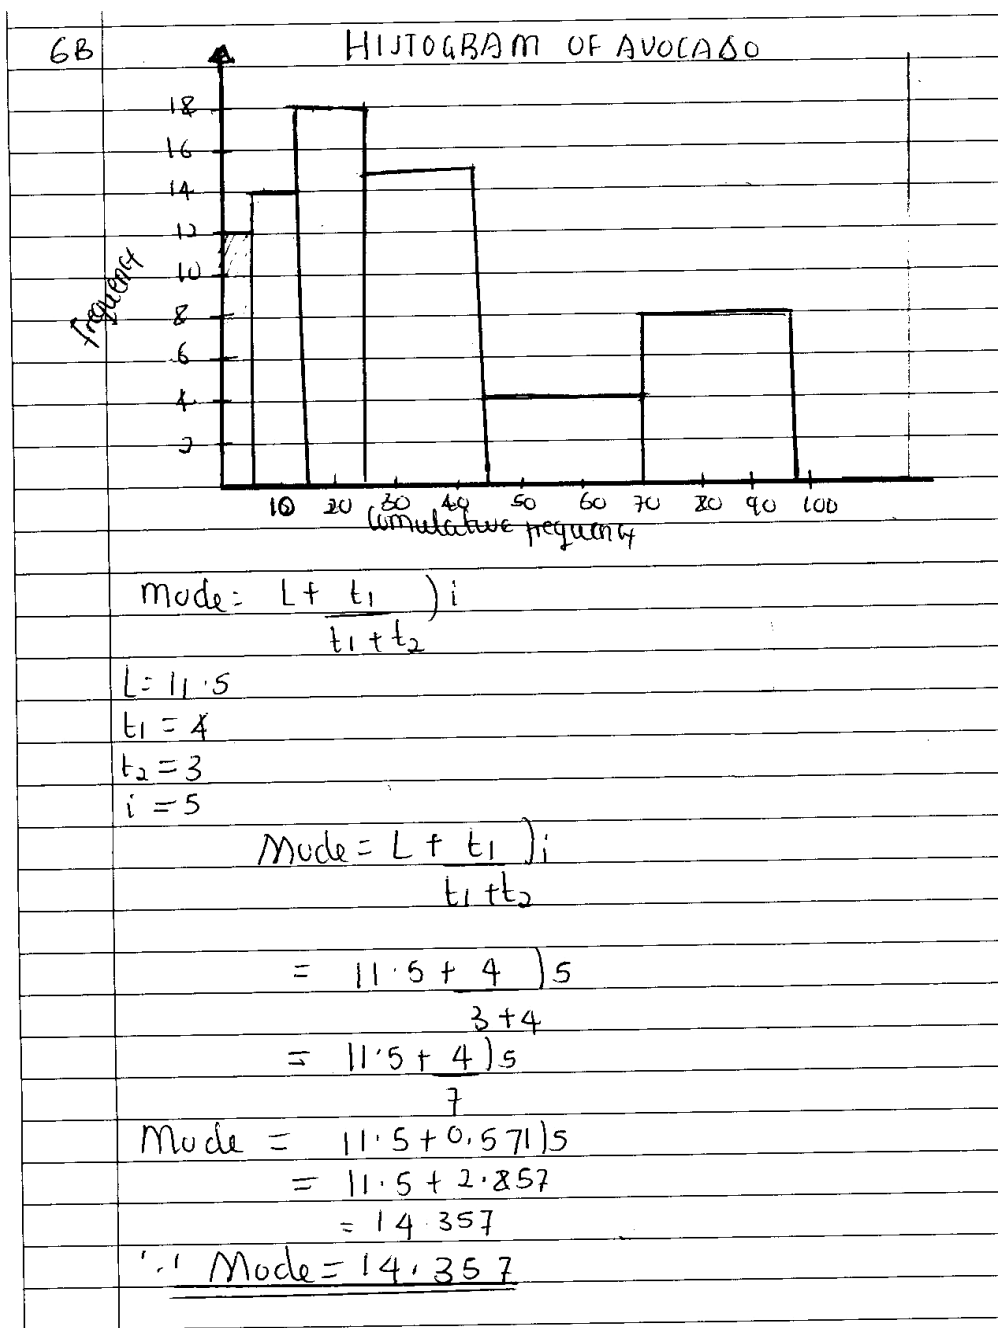 6B HISTOGRAM OF AVOCADO
18
16
14
12
10
8
6
4
2
frequency
10 20 30 40 50 60 70 80 90 100
Cumulative frequency
Mode = L + t1 ) i
t1 + t2
L = 11.5
t1 = 4
t2 = 3
i = 5
Mode = L + t1 ) i
t1 + t2
= 11.5 + 4 ) 5
3 + 4
= 11.5 + 4 ) 5
7
Mode = 11.5 + 0.571) 5
= 11.5 + 2.857
= 14.357
∵ Mode = 14.357